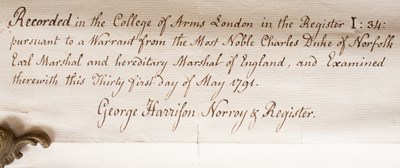 Recorded in the College of Arms London in the Register I: 34:
pursuant to a Warrant from the Most Noble Charles Duke of Norfolk
Earl Marshal and hereditary Marshal of England, and Examined
therewith this Thirty first day of May 1791.
George Harriſon Norroy & Register.